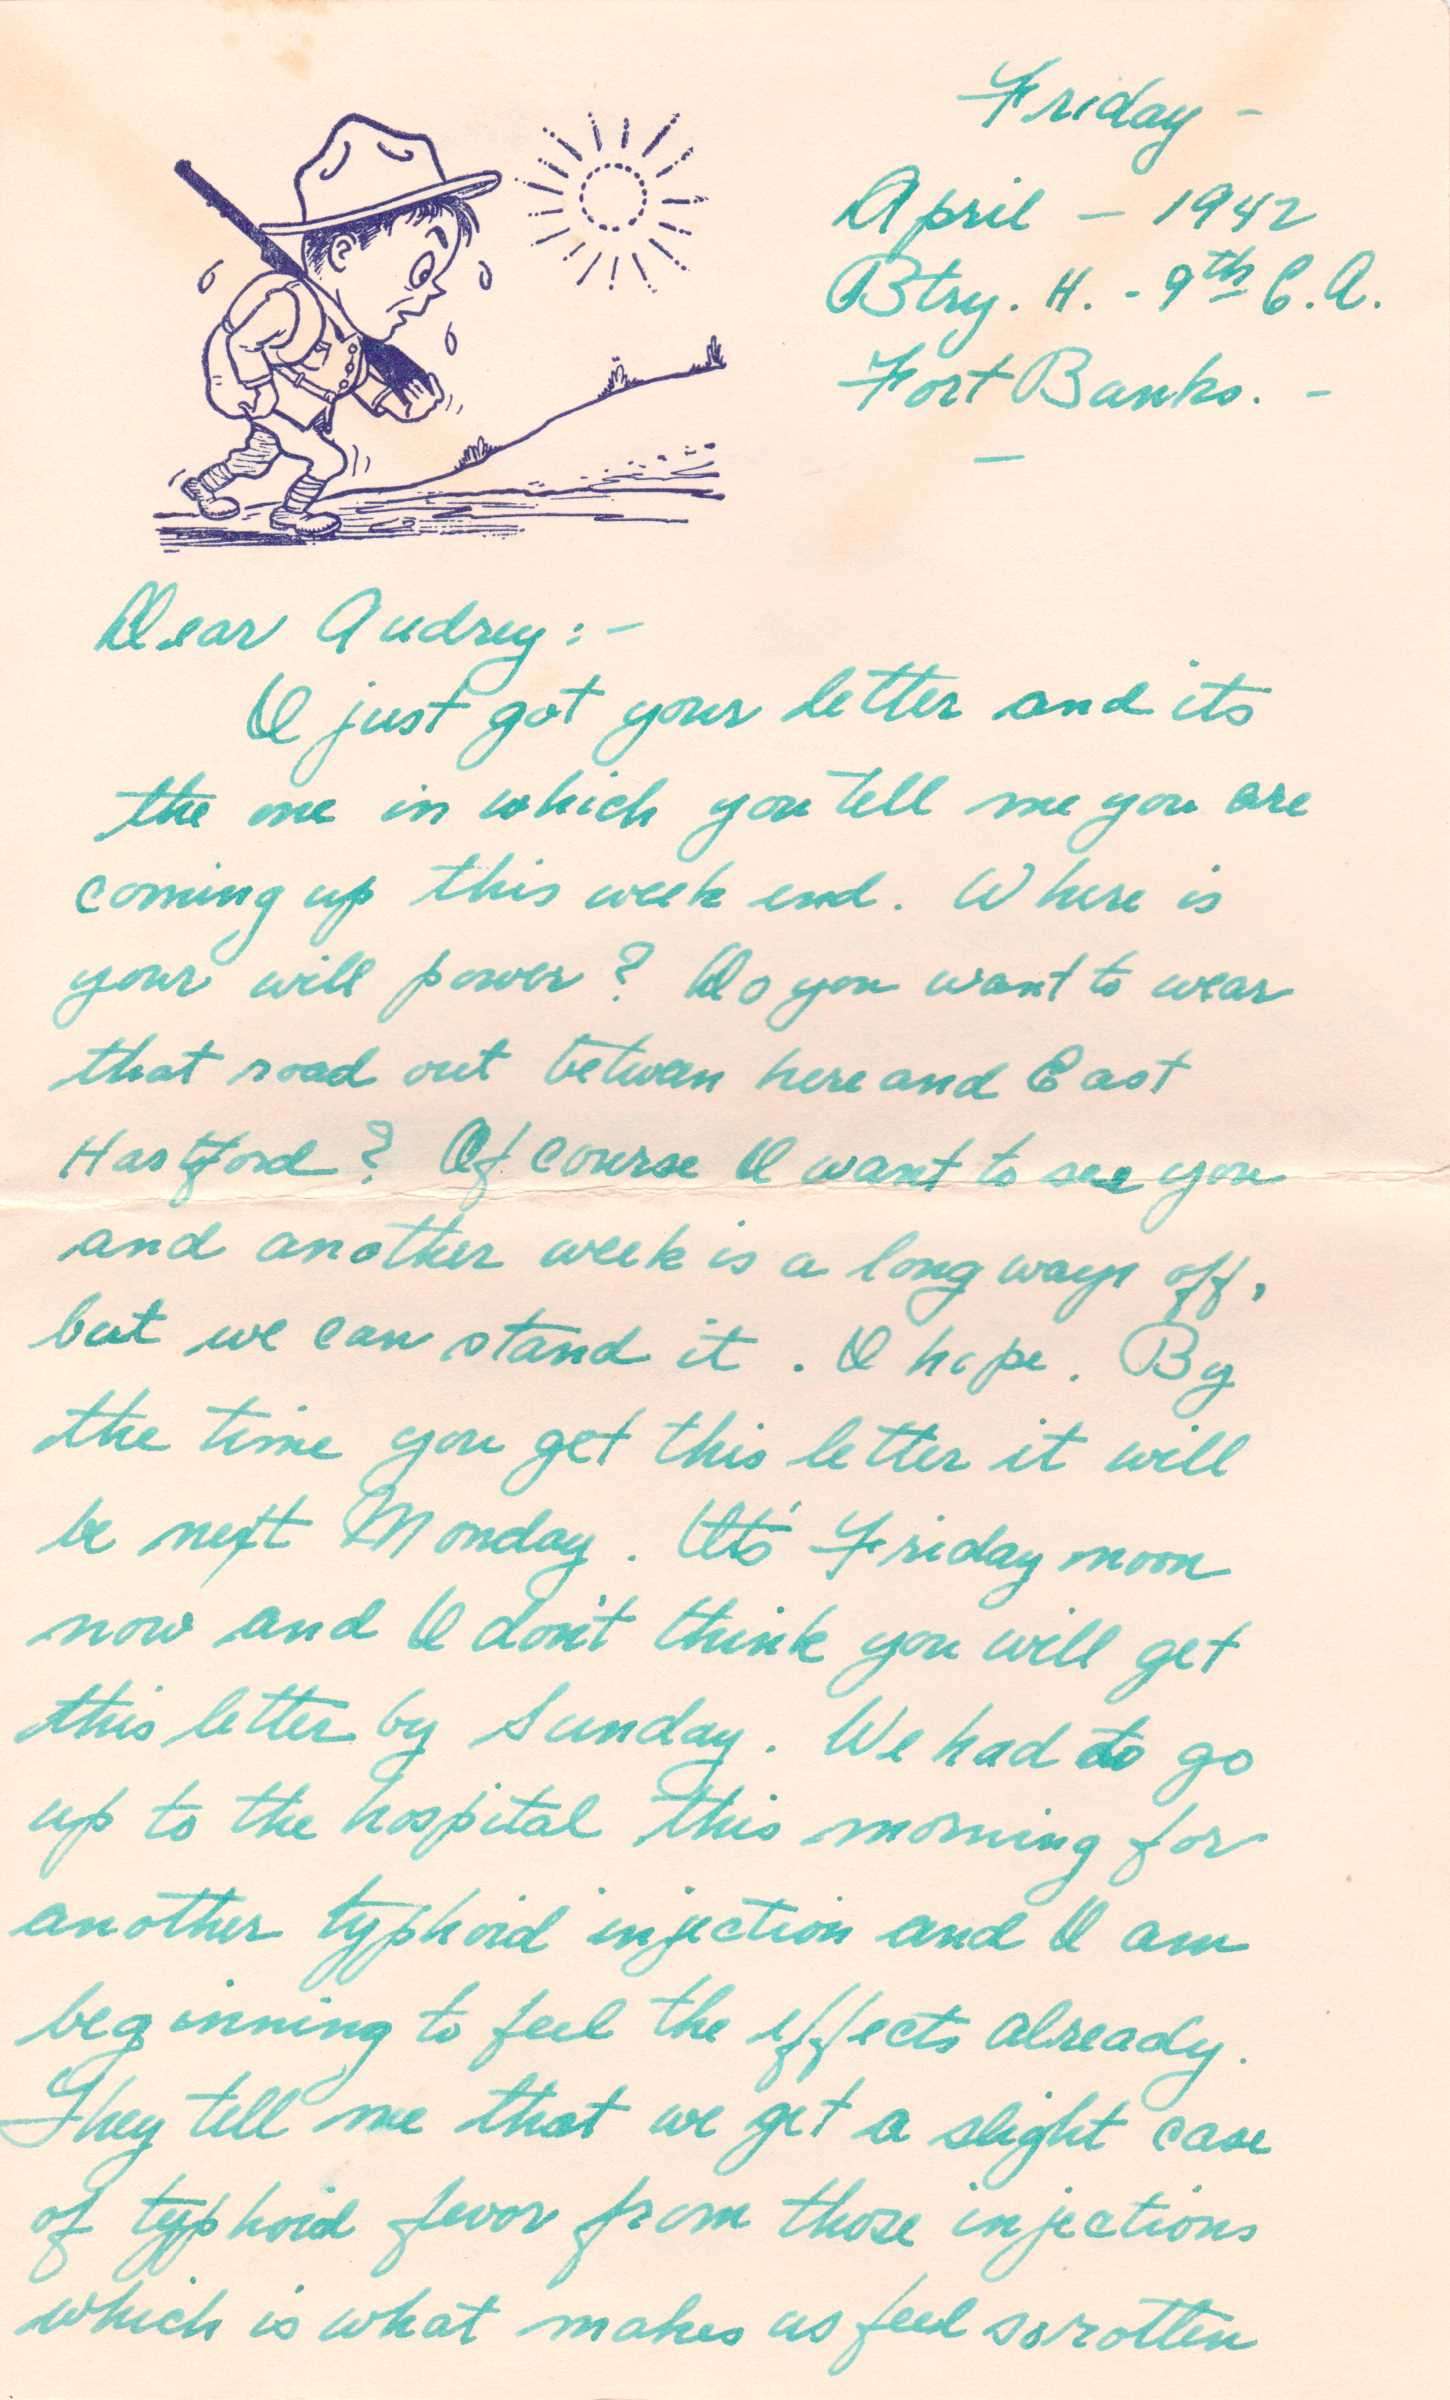 Friday -
April - 1942
Btry. H. - 9th C.A.
Fort Banks. -
-
Dear Audrey:-
I just got your letter and its
the one in which you tell me you are
coming up this week end. Where is
your will power? Do you want to wear
that road out between here and East
Hartford? Of course I want to see you
and another week is a long ways off,
but we can stand it. I hope. By
the time you get this letter it will
be next Monday. Its' Friday noon
now and I don't think you will get
this letter by Sunday. We had to go
up to the hospital this morning for
another typhoid injection and I am
beginning to feel the effects already.
They tell me that we get a slight case
of typhoid fevor from those injections
which is what makes us feel so rotten